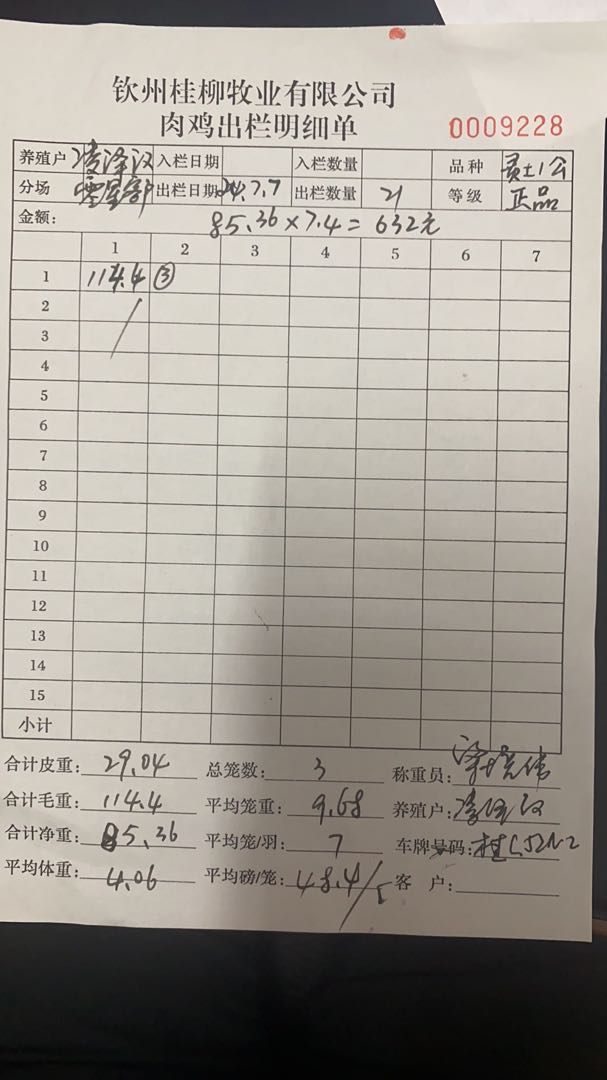 钦州桂柳牧业有限公司
肉鸡出栏明细单 0009228
养殖户 凌泽汉 入栏日期 入栏数量 品种 灵土1公
分场 灵星部 出栏日期 24.7.7 出栏数量 21 等级 正品
金额: 85.36×7.4=632元
1 2 3 4 5 6 7
1 114.4 ③
2
3
4
5
6
7
8
9
10
11
12
13
14
15
小计
合计皮重: 29.04 总笼数: 3 称重员:
合计毛重: 114.4 平均笼重: 9.68 养殖户: 凌泽汉
合计净重: 85.36 平均笼/羽: 7 车牌号码:
平均体重: 4.06 平均磅/笼: 48.4/5 客 户: